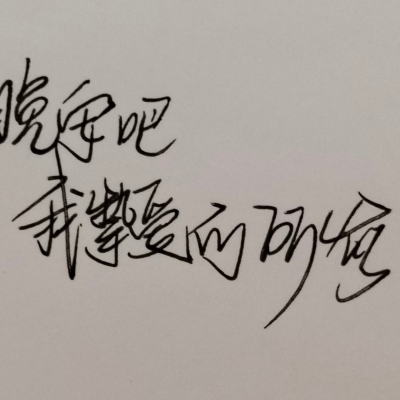 晚安吧
我挚爱的所有